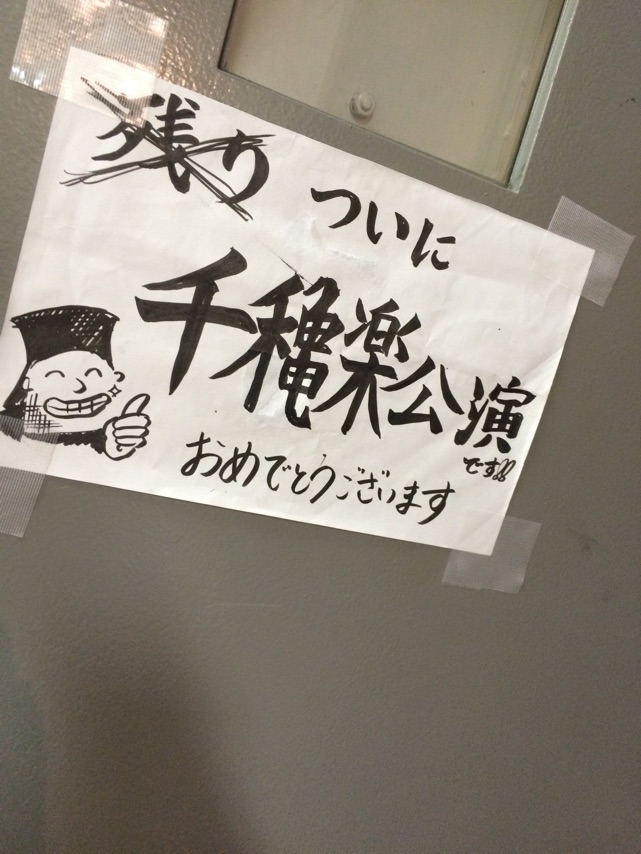 残り
ついに
千穐楽公演
です!!
おめでとうございます